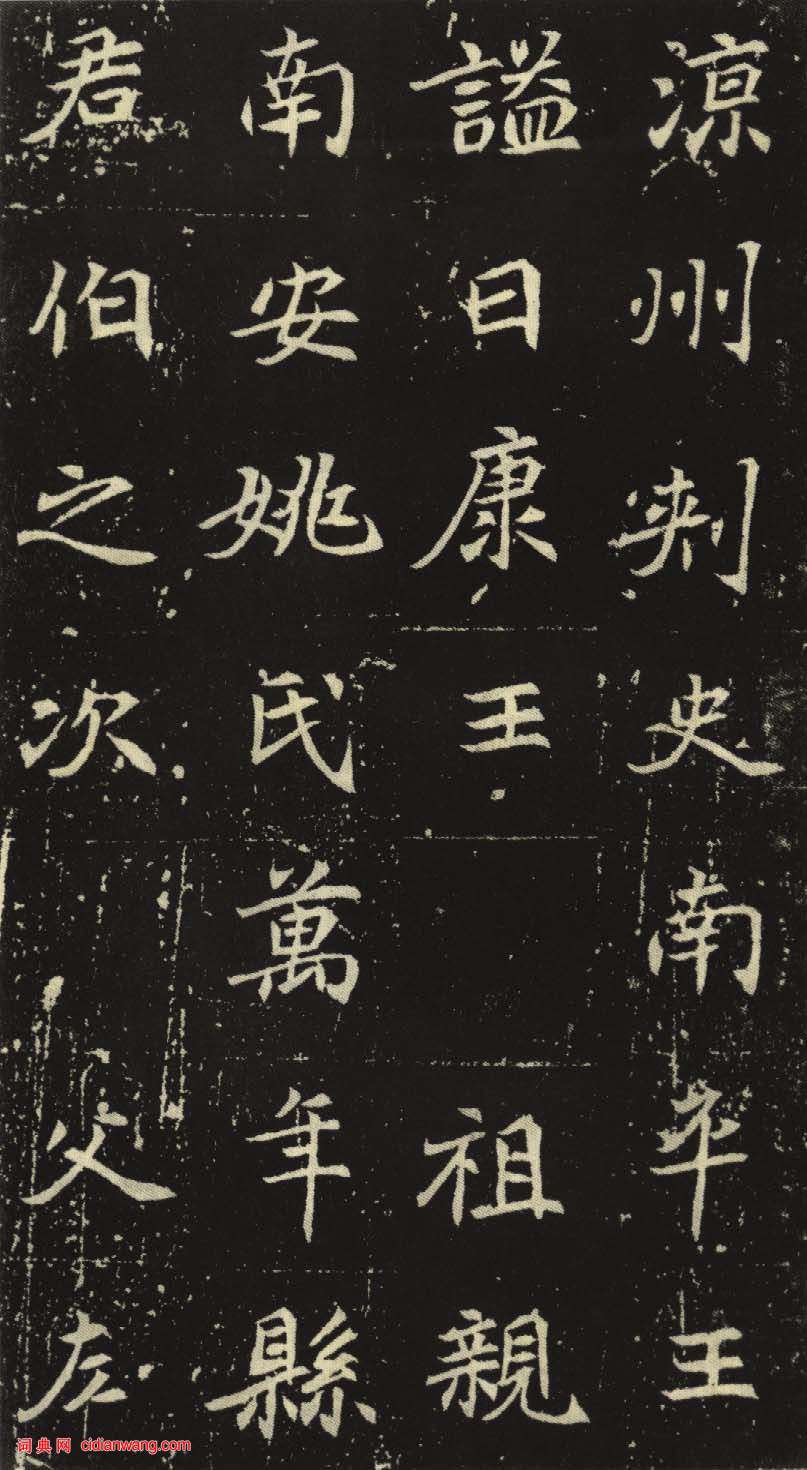 涼州刺史南平王
謚曰康王 祖親
南安姚氏萬年縣
君伯之次 父左
词典网 cidianwang.com